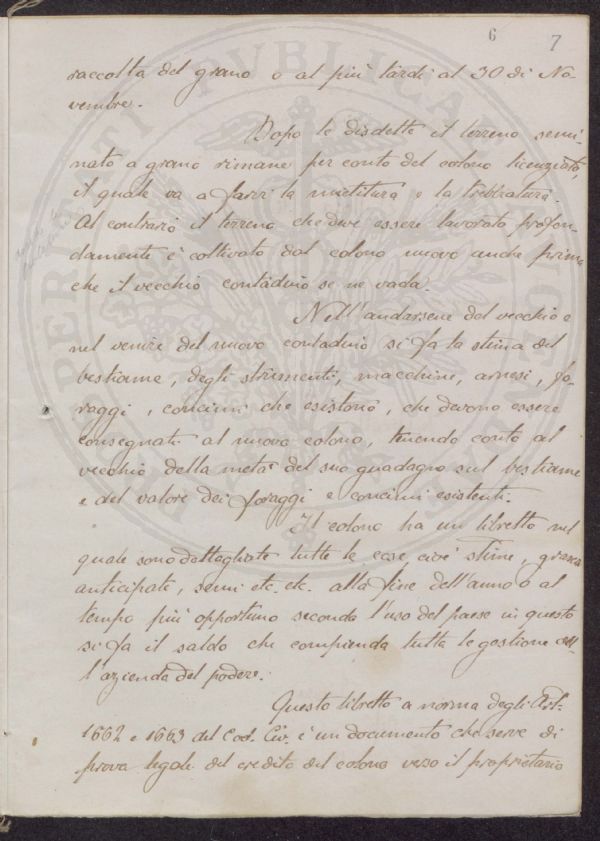 6 7
raccolta del grano o al più tardi al 30 di No-
vembre.
Dopo le disdette il terreno semi-
nato a grano rimane per conto del colono licenziato,
il quale va a farvi la mietitura e la trebbiatura.
Al contrario il terreno che deve essere lavorato profon-
damente è coltivato dal colono nuovo anche prima
che il vecchio contadino se ne vada.
Nell'andarsene del vecchio e
nel venire del nuovo contadino si fa la stima del
bestiame, degli strumenti, macchine, arnesi, fo-
raggi, concimi che esistono, che devono essere
consegnati al nuovo colono, tenendo conto al
vecchio della metà del suo guadagno sul bestiame
e del valore dei foraggi e concimi esistenti.
Il colono ha un libretto nel
quale sono dettagliate tutte le cose cioè stime, grasce
anticipate, semi etc. etc. alla fine dell'anno o al
tempo più opportuno secondo l'uso del paese in questo
si fa il saldo che comprenda tutta la gestione del-
l'azienda del podere.
Questo libretto a norma degli Art.
1662 e 1663 del Cod. Civ. è un documento che serve di
prova legale del credito del colono verso il proprietario